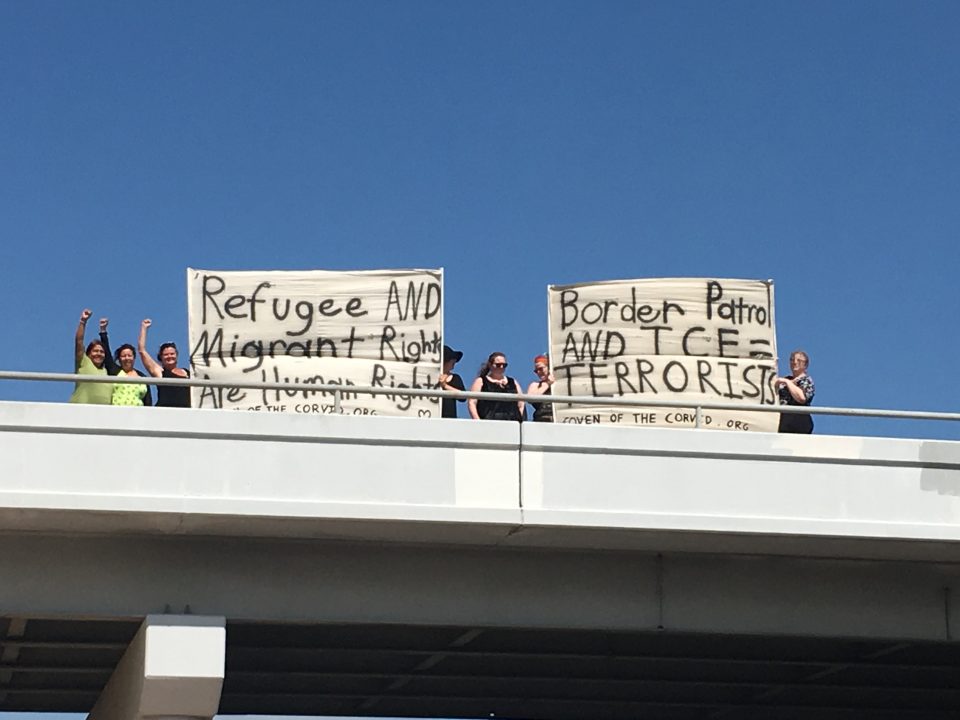 Refugee AND
Migrant Rights
Are Human Rights
OF THE CORVID.ORG ♡
Border Patrol
AND ICE =
TERRORISTS
COVEN OF THE CORVID.ORG